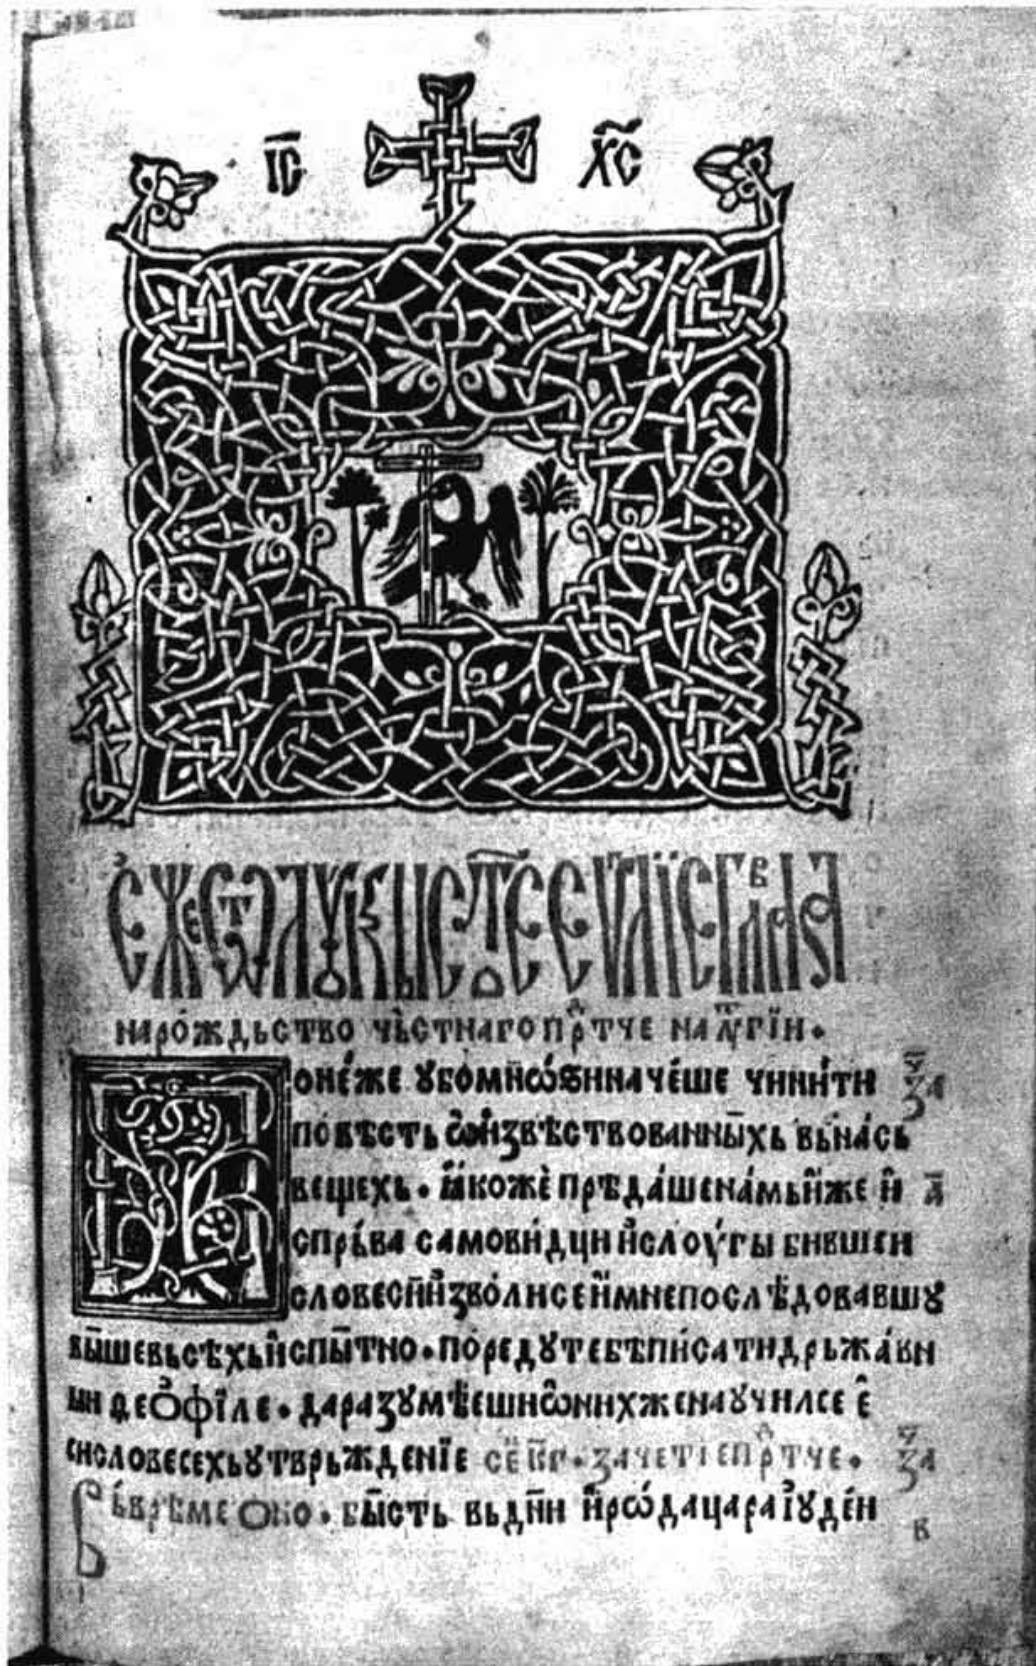 І҃С Х҃С
ЕЖЕ Ѿ ЛУКЫ СТ҃ОЕ ЕѴ҃ЛІЕ ГЛ҃ВА А
на рождьство чьстнаго прⷣтче на лѵⷮгїи ·
Понеже ѹбо мнѡѕи начеше чинити за҃ч
повѣсть ѡ извѣствованныхь вь нась
вещехь · ꙗкоже прѣдаше намь иже и а҃
спрьва самовидци и слоугы бившеи
словеси изволисе и мне последовавшꙋ
выше вьсѣхь испытно · поредꙋ тебѣ писати дрьжавн
ыи ѳеѡфїле · да разꙋмѣеши ѡ нихже наꙋчилсе е
си словесехь ꙋтврьжденїе се҃ к҃г · зачетіе прⷣтче · за҃ч
Вь врѣме оно · бысть вь дн҃и ирѡда цара іꙋдеи
в